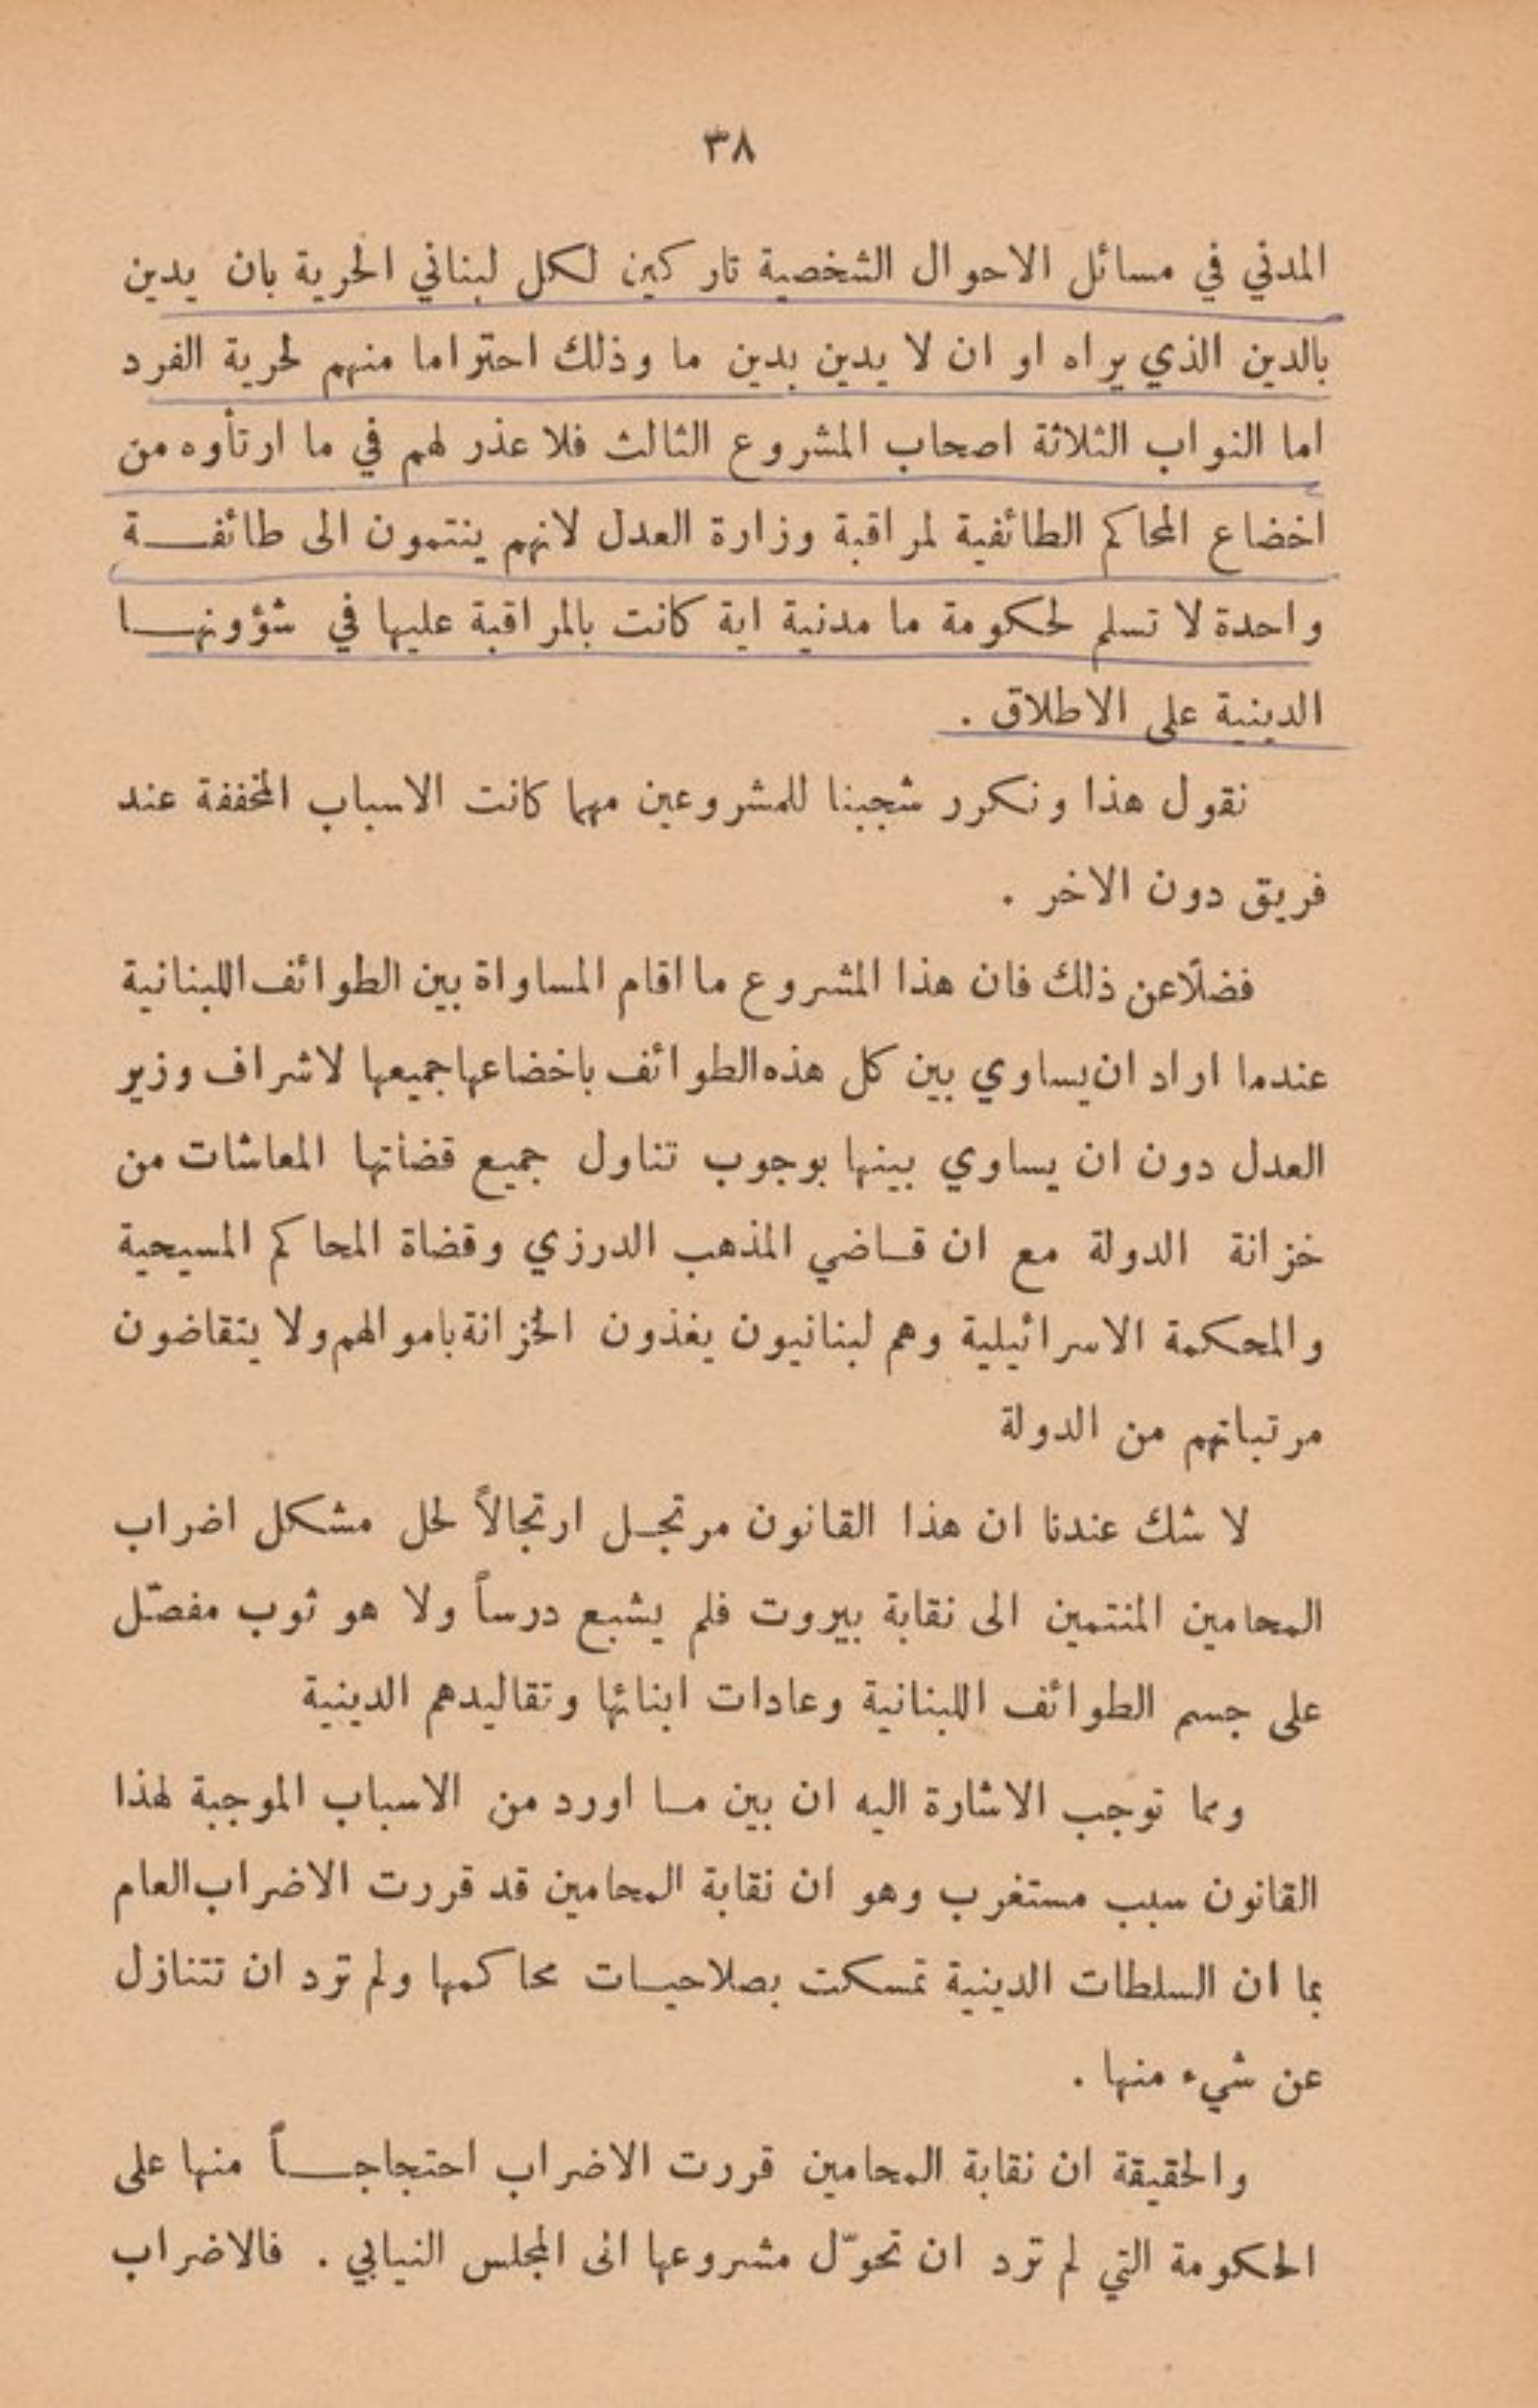 ٣٨
المدني في مسائل الاحوال الشخصية تاركين لكل لبناني الحرية بان يدين
بالدين الذي يراه او ان لا يدين بدين ما وذلك احتراما منهم لحرية الفرد
اما النواب الثلاثة اصحاب المشروع الثالث فلا عذر لهم في ما ارتأوه من
اخضاع المحاكم الطائفية لمراقبة وزارة العدل لانهم ينتمون الى طائفـــة
واحدة لا تسلم لحكومة ما مدنية اية كانت بالمراقبة عليها في شؤونهـــا
الدينية على الاطلاق .
نقول هذا ونكرر شجبنا للمشروعين مهما كانت الاسباب المخففة عند
فريق دون الاخر .
فضلًا عن ذلك فان هذا المشروع ما اقام المساواة بين الطوائف اللبنانية
عندما اراد ان يساوي بين كل هذه الطوائف باخضاعها جميعها لاشراف وزير
العدل دون ان يساوي بينها بوجوب تناول جميع قضأتها المعاشات من
خزانة الدولة مع ان قـاضي المذهب الدرزي وقضاة المحاكم المسيحية
والمحكمة الاسرائيلية وهم لبنانيون يغذون الخزانة باموالهم ولا يتقاضون
مرتباتهم من الدولة
لا شك عندنا ان هذا القانون مرتجـل ارتجالاً لحل مشكل اضراب
المحامين المنتمين الى نقابة بيروت فلم يشبع درساً ولا هو ثوب مفصّل
على جسم الطوائف اللبنانية وعادات ابنائها وتقاليدهم الدينية
ومما توجب الاشارة اليه ان بين مـا اورد من الاسباب الموجبة لهذا
القانون سبب مستغرب وهو ان نقابة المحامين قد قررت الاضراب العام
بما ان السلطات الدينية تمسكت بصلاحيـات محاكمها ولم ترد ان تتنازل
عن شيء منها .
والحقيقة ان نقابة المحامين قررت الاضراب احتجاجـــاً منها على
الحكومة التي لم ترد ان تحوّل مشروعها الى المجلس النيابي . فالاضراب